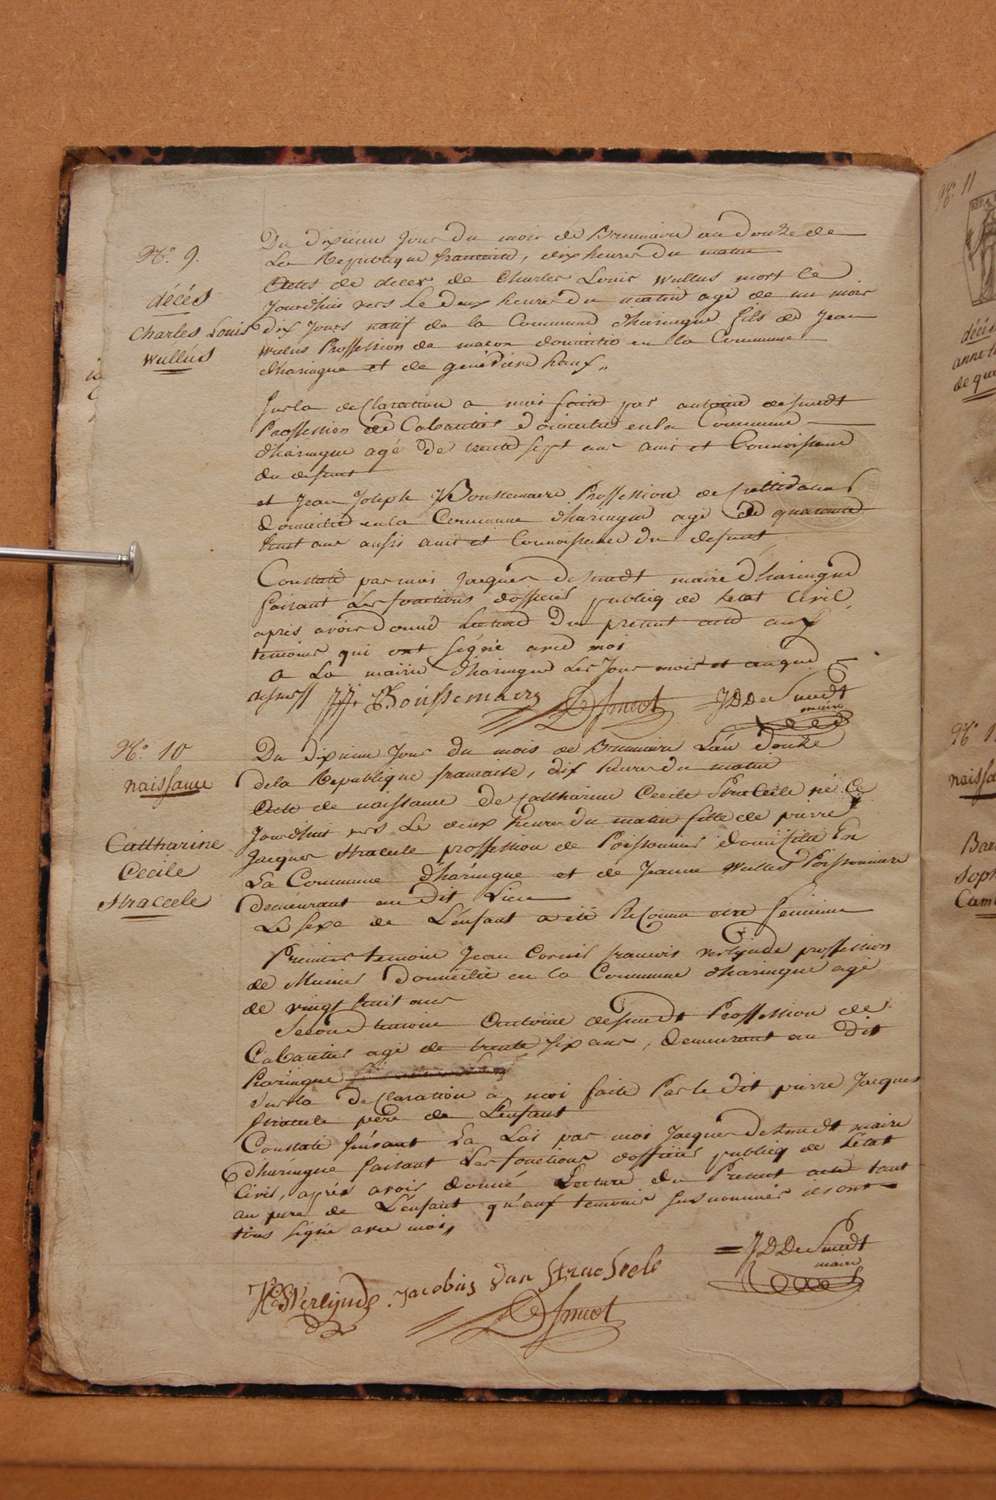 N.º 9.
décés
Charles Louis
Wullus
Du dixieme Jour du mois de Brumaire an douze de
La Republique francaise, dix heures du matin
Actes de deces de Charles Louis Wullus mort le
Jourdhui vers Le deux heures du matin agé de un mois
dix Jours natif de la Commune dharingue fils de Jean
Wulus Proffession de macon domicilie en la Commune
dharingue et de genevieve
Surla declaration a moi faite par antoine desmedt
Proffession de Cabartier domicilie en la Commune
dharingue agé de trente sept ans ami et Connoissance
du defunt
et Jean Joseph Boussemaere Proffession de
Domicilie en la Commune dharingue agé de quarante
huit ans aussi ami et Connoissance du defunt
Constaté par moi Jacques Desmedt maire dharingue
faisant Les fonctions d'officier publiq de Letat Civil,
apres avoir donné Lecture du present acte aux
temoins qui ont signé avec moi
a La mairie dharingue Les Jour mois et an que
J.J. Boussemaere DSmedt JDDeSmedt
maire
N.º 10
naissance
Catharine
Cecile
straceele
Du dixieme Jour du mois de Brumaire L'an douze
dela Republique francaise, dix heures du matin
Acte de naissance de Catharine Cecile Straceele né Ce
Jourdhui vers Le deux heures du matin fille de pierre
Jacques straceele proffession de Poissonnier domicilie En
La Commune dharingue et de Jeanne Wullus Poissonniere
demeurant au dit Lieu
Le sexe de L'enfant a été Reconnu etre feminine
Premier temoin Jean francois verlynde proffession
de Munier domicilié en la Commune dharingue agé
de vingt huit ans
Second temoin Antoine desmedt Proffession de
Cabartier agé de trente six ans, demeurant au dit
haringue
Surla declaration a moi faite Par le dit pierre Jacques
straceele pere de L'enfant
Constaté suivant La Loi par moi Jacques Desmedt maire
dharingue faisant Les fonctions dofficier publiq de Létat
Civil, apres avoir donné Lecture du Present acte tant
au pere de L'enfant qu'aux temoins susnommés ils ont
tous signé avec moi,
Verlynde Jacobus Van Straeseele JDDeSmedt
maire
DSmedt
N.º 11
décés
de que
N.º 1
naissa
Bar
Soph
Cam